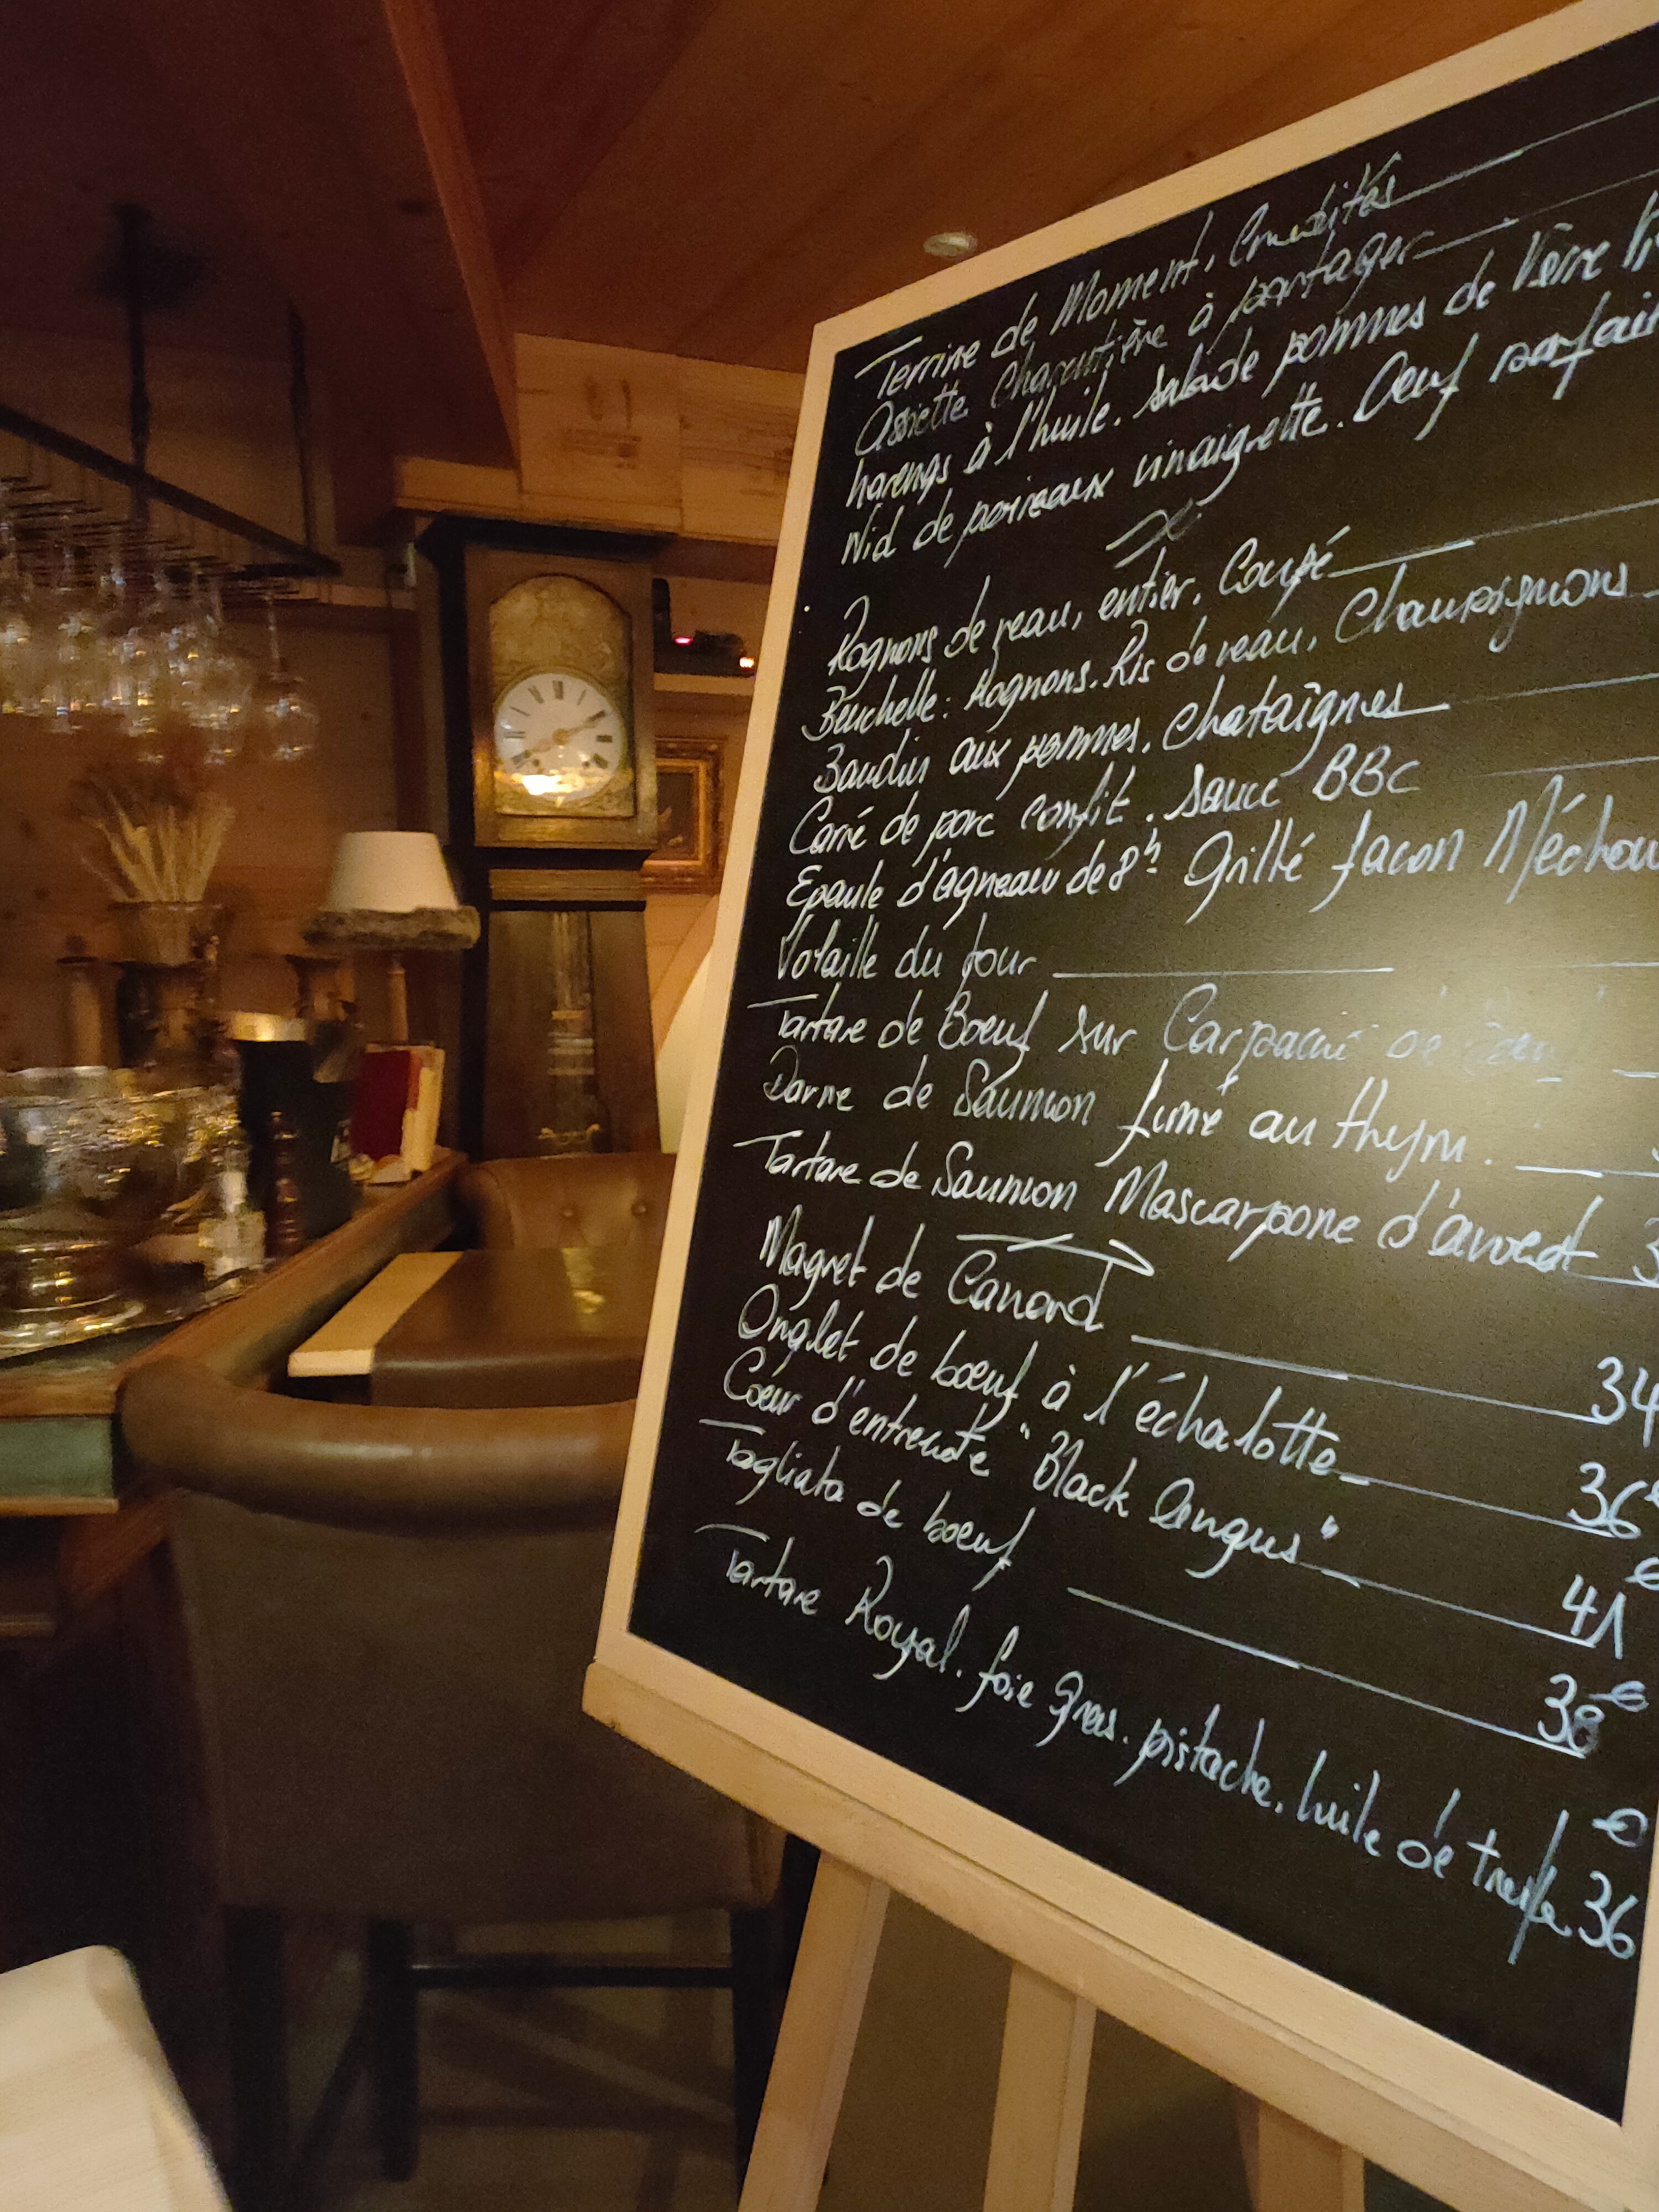 Terrine de Moment, Crudités
Assiette Charcutière à partager
harengs à l'huile. salade pommes de terre
Nid de poireaux vinaigrette. Oeuf parfait
Rognons de veau, entier, Coupé
Beuchelle: Rognons. Ris de veau, Champignons
Boudin aux pommes, Chataîgnes
Carré de porc confit. Sauce BBC
Epaule d'agneau de 8h Grillé facon Méchou
Volaille du four
Tartare de Boeuf sur Carpaccio de
Darne de Saumon fumé au thym.
Tartare de Saumon Mascarpone d'avocat 3
Magret de Canard 34
Onglet de boeuf à l'échalotte 36€
Coeur d'entrecôte "Black Angus" 41€
Tagliata de boeuf 38€
Tartare Royal. foie gras. pistache. huile de truffe 36€